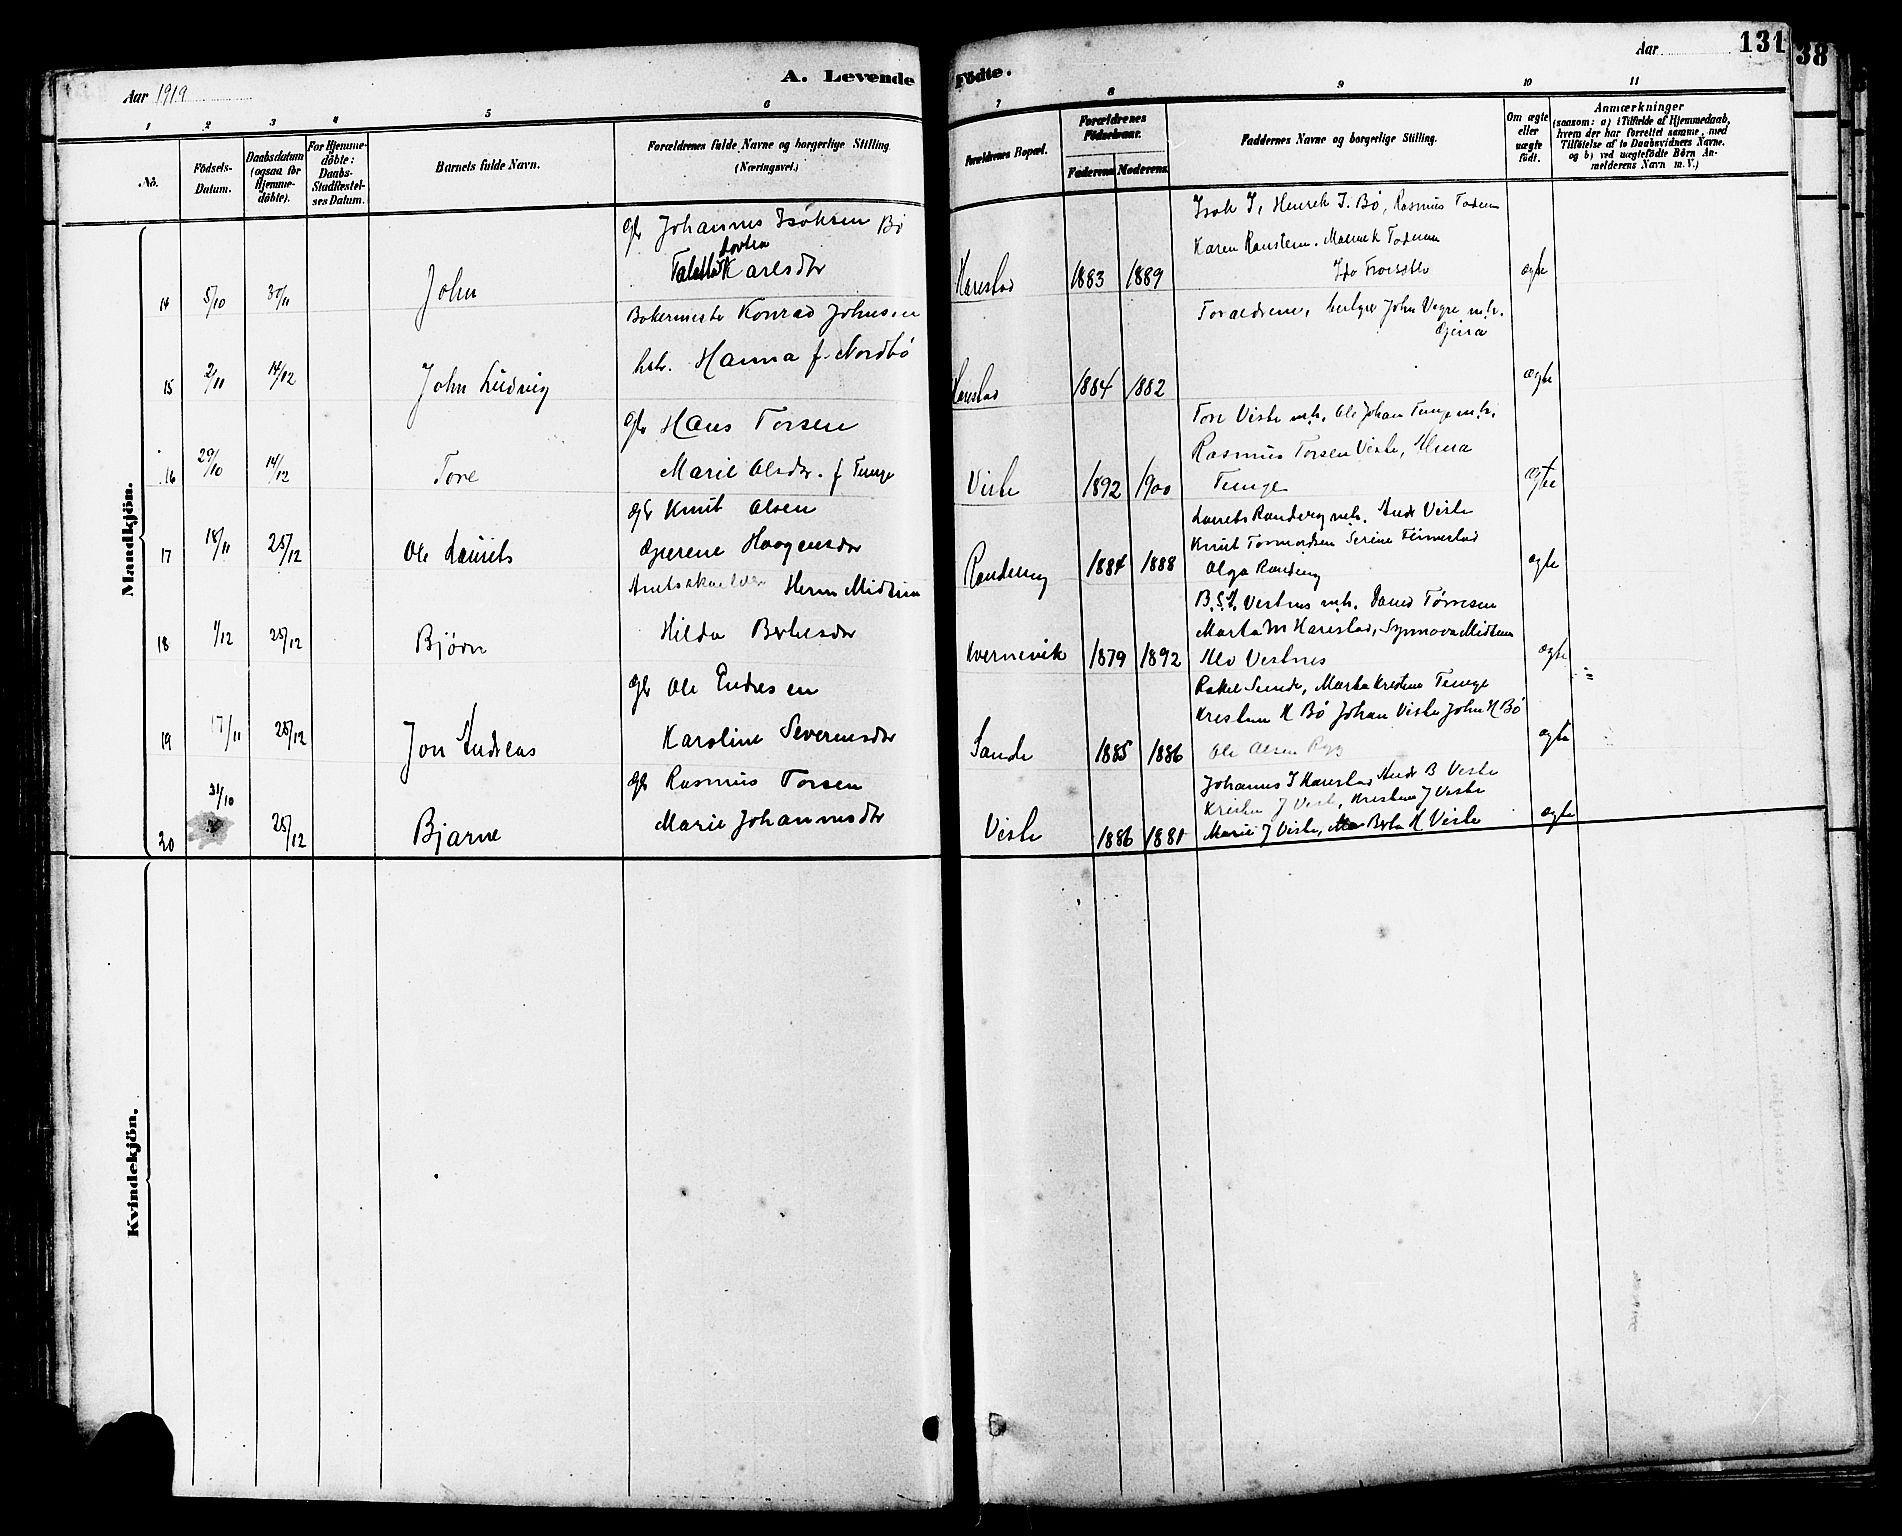 Aar 1919
A. Levende Födte.
Aar
131
38
1 2 3 4 5 6 7 8 9 10 11
No.
Födsels-Datum.
Daabsdatum (ogsaa for Hjemme-döbte).
For Hjemme-döbte: Daabs-Stadfæstel-ses Datum.
Barnets fulde Navn.
Forældrenes fulde Navne og borgerlige Stilling (Næringsvei.)
Forældrenes Bopæl.
Forældrenes Födselsaar.
Faderens Moderens
Faddernes Navne og borgerlige Stilling.
Om ægte eller uægte födt.
Anmærkninger
(saasom: a) i Tilfælde af Hjemmedaab, hvem der har forrettet samme, med Tilföielse af to Daabsvidners Navne, og b) ved uægtefödte Börn An-melderens Navn m. V.)
Mandkjön.
14 5/10 30/11 John
Johannes Isaksen Bø
Karlsdtr
Harestad 1883 1889
Isak I, Henrek I. Bø, Rasmus
Karen
ægte
15 2/11 14/12 John Ludvig
Bakermester Konrad Johnsen
Hanna f. Nordbø
Harestad 1884 1882
Forældrene, John m.h.
ægte
16 29/10 14/12 Tore
Hans Torsen
Marie Olsdtr. f Tunge
Viste 1892 1900
Tore Viste m.h. Ole Johan Tunge m.h.
Rasmus Torsen Viste,
Tunge
ægte
17 18/11 25/12 Ole Laurits
Knut Olsen
Randeberg 1884 1888
Laurits Randeberg m.h. Andr Viste
Knut Tormodsen Serine
Olga Randeberg
ægte
18 1/12 25/12 Bjørn
Herm Midtun
Hilda
Kvernevik 1879 1892
Vestnes m.h. Tørresen
Marta M Harestad, Synnøva Midtun
Vestnes
ægte
19 17/11 25/12 Jon Andreas
Ole Endresen
Karoline Severinsdtr
Sande 1885 1886
Rakel Sunde, Marta Kristine Tunge
Kristen H Bø Johan Viste John H Bø
Ole Olsen
ægte
20 31/10 25/12 Bjarne
Rasmus Torsen
Marie Johannesdtr
Viste 1886 1881
Johannes I Harestad Andr B Viste
J Viste
Marie J Viste, Berta H Viste
ægte
Kvindekjön.